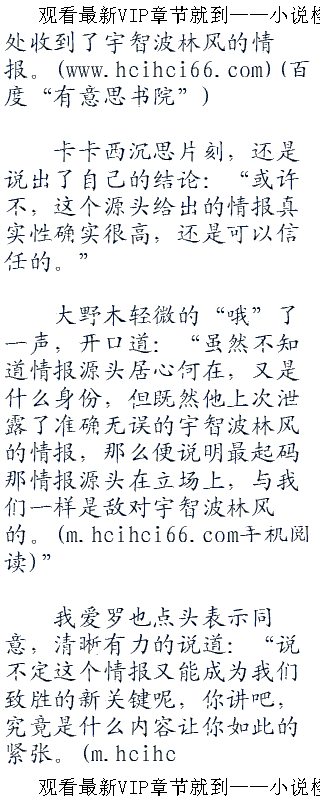 观看最新VIP章节就到——小说检
处收到了宇智波林风的情
报。(www.hcihci66.com)(百
度“有意思书院”)
卡卡西沉思片刻，还是
说出了自己的结论：“或许
不，这个源头给出的情报真
实性确实很高，还是可以信
任的。”
大野木轻微的“哦”了
一声，开口道：“虽然不知
道情报源头居心何在，又是
什么身份，但既然他上次泄
露了准确无误的宇智波林风
的情报，那么便说明最起码
那情报源头在立场上，与我
们一样是敌对宇智波林风
的。(m.hcihci66.com手机阅
读)”
我爱罗也点头表示同
意，清晰有力的说道：“说
不定这个情报又能成为我们
致胜的新关键呢，你讲吧，
究竟是什么内容让你如此的
紧张。(m.hcihc
观看最新VIP章节就到——小说检